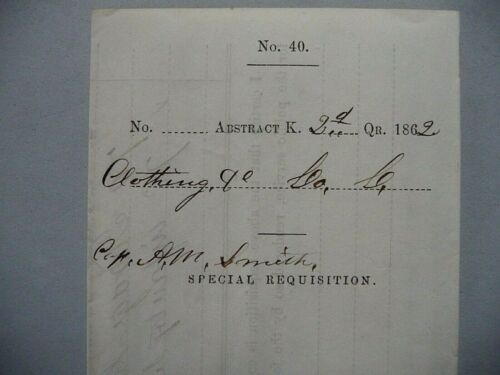 No. 40.
No. ........ Abstract K. 2nd Qr. 1862
Clothing, &c Co. C,
Cap. A.M. Smith,
SPECIAL REQUISITION.